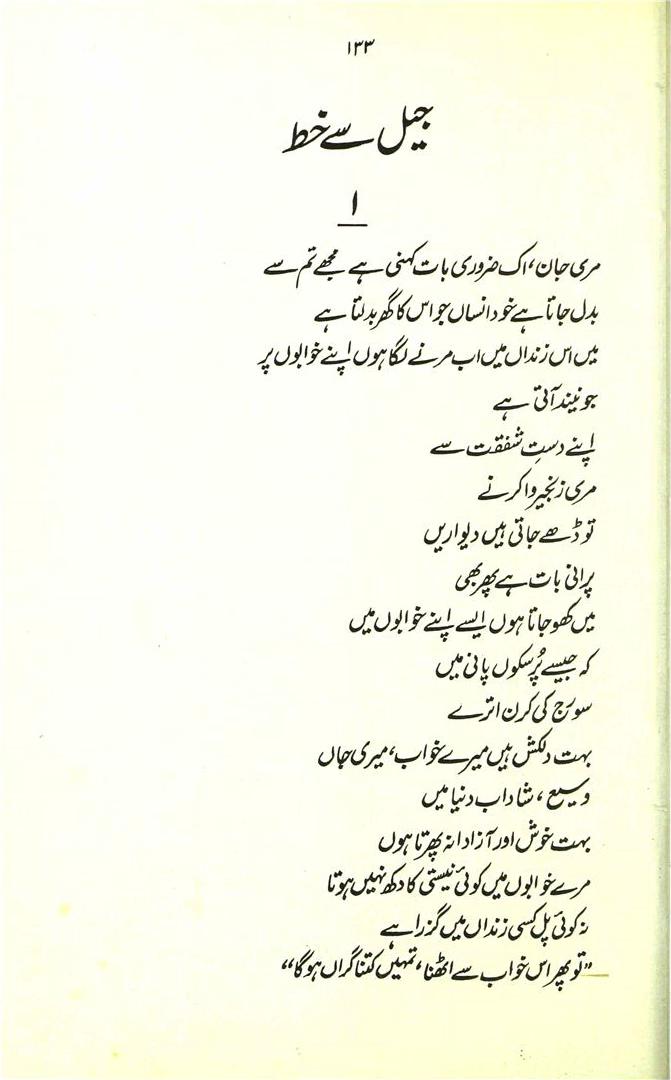 ۱۳۳
جیل سے خط
۱
مری جان، اک ضروری بات کہنی ہے مجھے تم سے
بدل جاتا ہے خود انساں جو اس کا گھر بدلتا ہے
میں اس زنداں میں اب مرنے لگا ہوں اپنے خوابوں پر
جو نیند آتی ہے
اپنے دستِ شفقت سے
مری زنجیر وا کرنے
تو ڈھے جاتی ہیں دیواریں
پرانی بات ہے پھر بھی
میں کھو جاتا ہوں ایسے اپنے خوابوں میں
کہ جیسے پُرسکوں پانی میں
سورج کی کرن اترے
بہت دلکش ہیں میرے خواب، میری جاں
وسیع، شاداب دنیا میں
بہت خوش اور آزادانہ پھرتا ہوں
مرے خوابوں میں کوئی نیستی کا دکھ نہیں ہوتا
نہ کوئی پل کسی زنداں میں گزرا ہے
”تو پھر اس خواب سے اٹھنا، تمہیں کتنا گراں ہوگا“